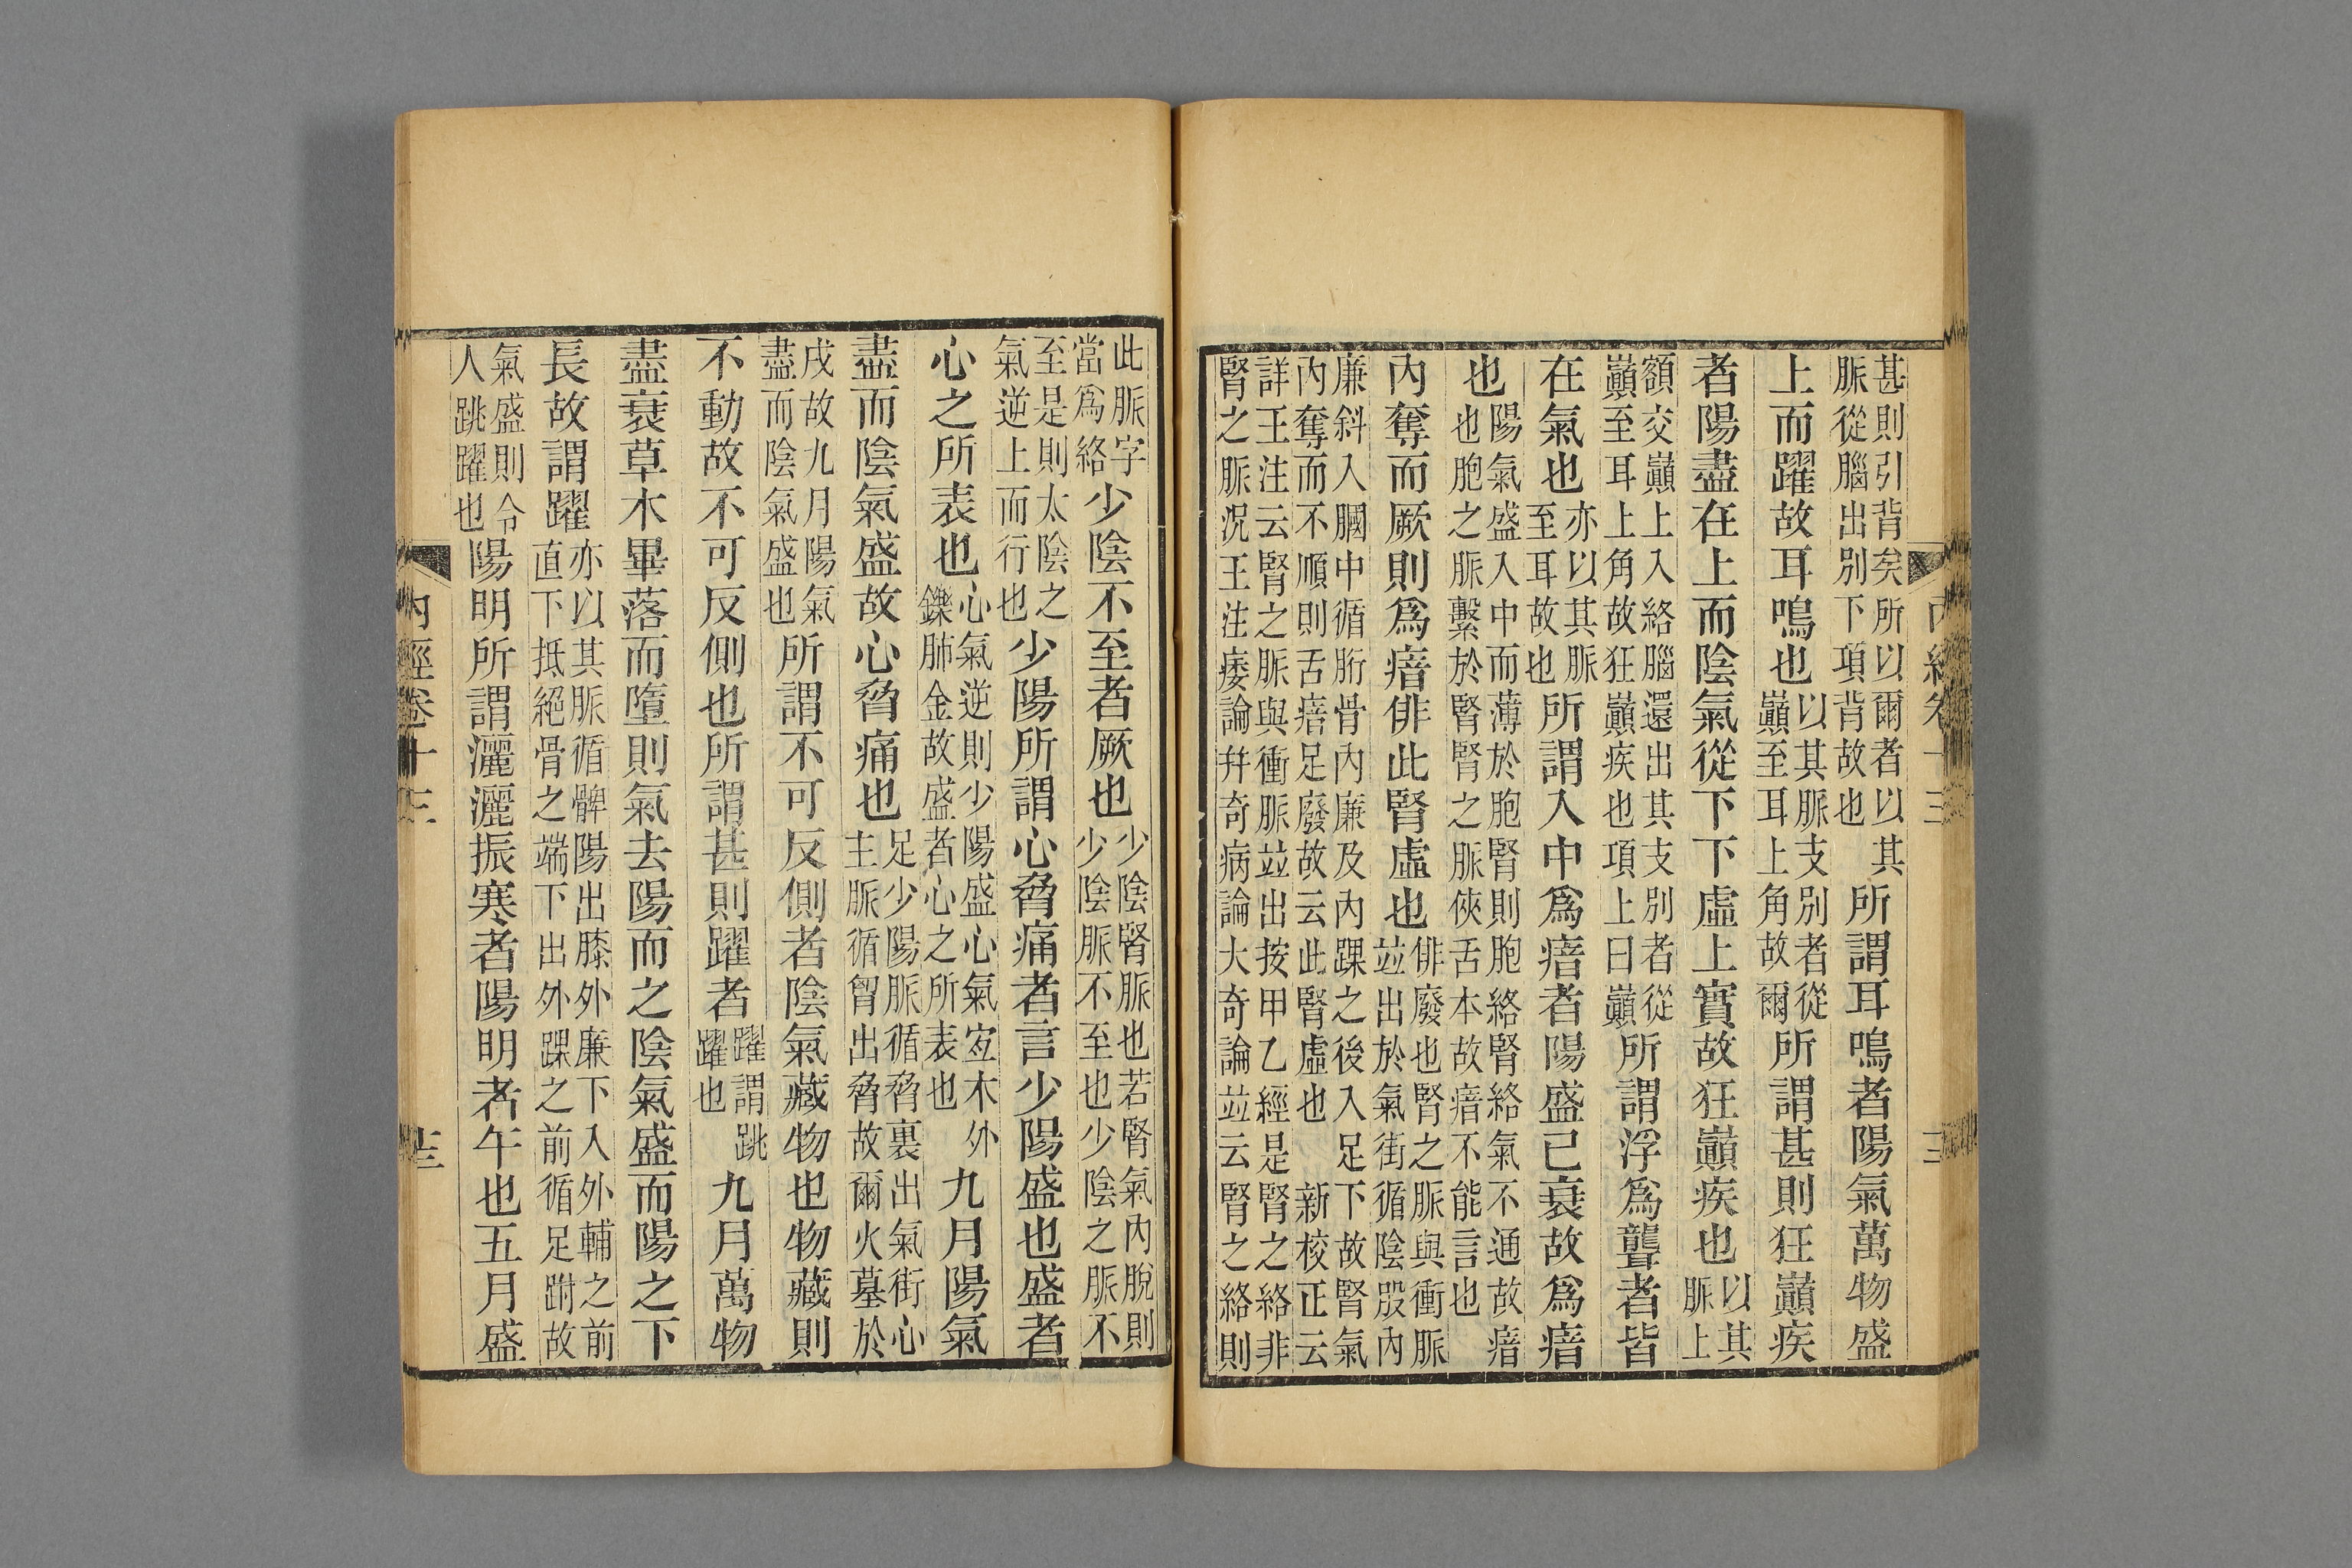 甚則引背矣所以爾者以其
脈從腦出別下項背故也
所謂耳鳴者陽氣萬物盛
上而躍故耳鳴也
以其脈支別者從
巔至耳上角故爾
所謂甚則狂巔疾
者陽盡在上而陰氣從下下虛上實故狂巔疾也
以其
脈上
額交巔上入絡腦還出其支別者從
巔至耳上角故狂巔疾也項上曰巔
所謂浮爲聾者皆
在氣也
亦以其脈
至耳故也
所謂入中爲瘖者陽盛已衰故爲瘖
也
陽氣盛入中而薄於胞腎則胞絡腎絡氣不通故瘖
也胞之脈繫於腎腎之脈俠舌本故瘖不能言也
內奪而厥則爲瘖俳此腎虛也
俳廢也腎之脈與衝脈
竝出於氣街循陰股內
廉斜入膕中循䯒骨內廉及內踝之後入足下故腎氣
內奪而不順則舌瘖足廢故云此腎虛也　新校正云
詳王注云腎之脈與衝脈竝出按甲乙經是腎之絡非
腎之脈況王注痿論幷奇病論大奇論竝云腎之絡則
內經卷十三
十三
此脈字
當爲絡
少陰不至者厥也
少陰腎脈也若腎氣內脫則
少陰脈不至也少陰之脈不
至是則太陰之
氣逆上而行也
少陽所謂心脅痛者言少陽盛也盛者
心之所表也
心氣逆則少陽盛心氣宐木外
鑠肺金故盛者心之所表也
九月陽氣
盡而陰氣盛故心脅痛也
足少陽脈循脅裏出氣街心
主脈循胷出脅故爾火墓於
戌故九月陽氣
盡而陰氣盛也
所謂不可反側者陰氣藏物也物藏則
不動故不可反側也所謂甚則躍者
躍謂跳
躍也
九月萬物
盡衰草木畢落而墮則氣去陽而之陰氣盛而陽之下
長故謂躍
亦以其脈循髀陽出膝外廉下入外輔之前
直下抵絕骨之端下出外踝之前循足跗故
氣盛則令
人跳躍也
陽明所謂灑灑振寒者陽明者午也五月盛
內經卷十三
十三